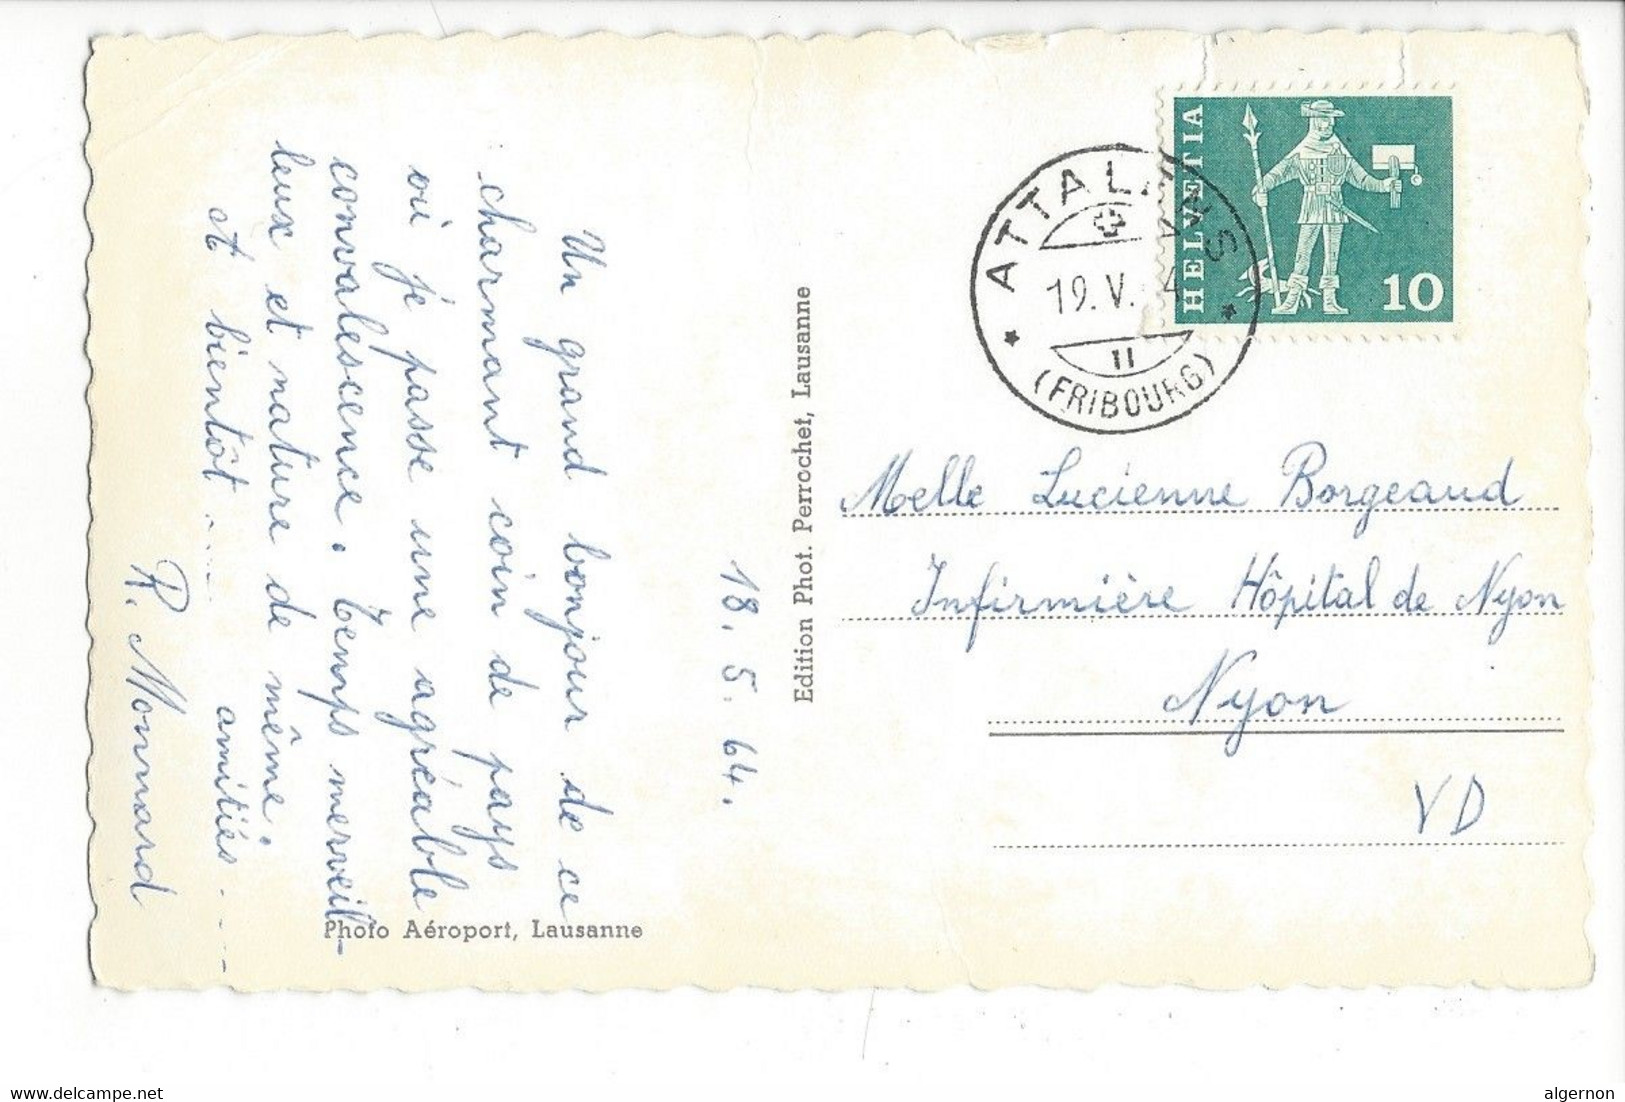 18. 5. 64.
Un grand bonjour de ce
charmant coin de pays
où je passe une agréable
convalescence. Temps merveil-
leux et nature de même.
et bientôt .... amitiés ....
R. Monnard
Photo Aéroport, Lausanne
Edition Phot. Perrochet, Lausanne
HELVETIA
10
ATTALENS
19. V. 4
11
(FRIBOURG)
Melle Lucienne Borgeaud
Infirmière Hôpital de Nyon
Nyon
VD
https://www.delcampe.net
algernon